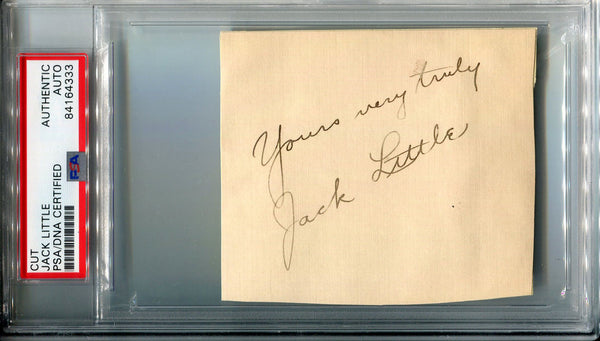 CUT
JACK LITTLE
PSA/DNA CERTIFIED
PSA
AUTHENTIC
AUTO
84164333
Yours very truly
Jack Little